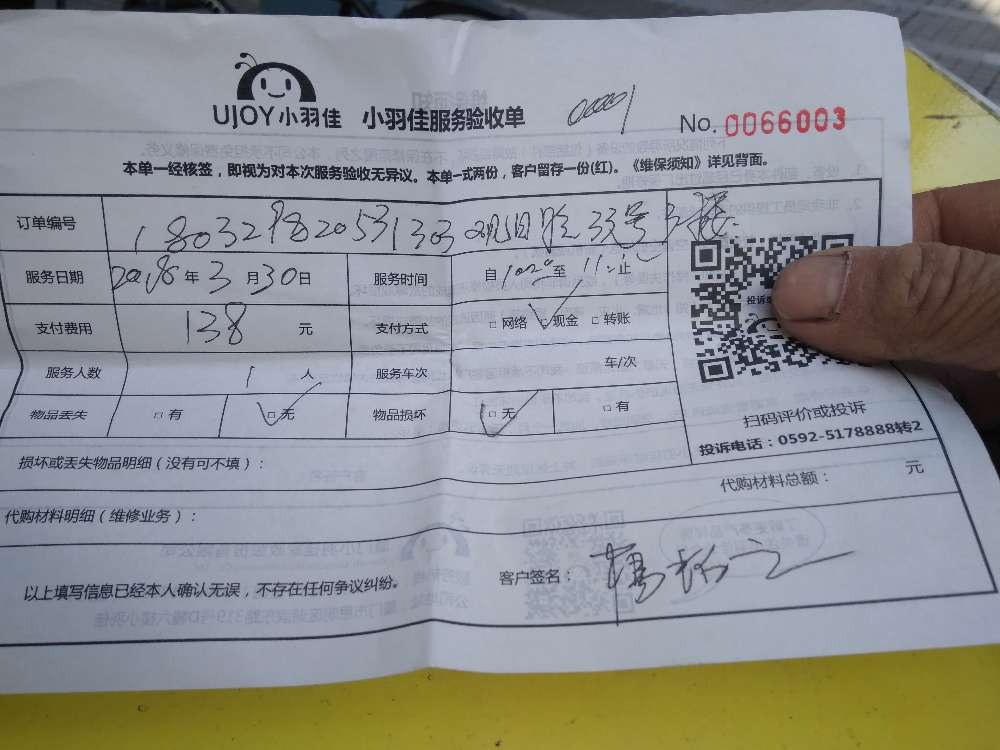 UJOY小羽佳 小羽佳服务验收单 00001 No. 0066003
本单一经核签，即视为对本次服务验收无异议。本单一式两份，客户留存一份(红)。《维保须知》详见背面。
订单编号 33号
服务日期 2018 年 3 月 30 日 服务时间 自 至 止
支付费用 138 元 支付方式 □ 网络 □ 现金 □ 转账
服务人数 1 人 服务车次 车/次
物品丢失 □ 有 □ 无 物品损坏 □ 无 □ 有
扫码评价或投诉
投诉电话：0592-5178888转2
损坏或丢失物品明细（没有可不填）：
代购材料总额： 元
代购材料明细（维修业务）：
以上填写信息已经本人确认无误，不存在任何争议纠纷。 客户签名：